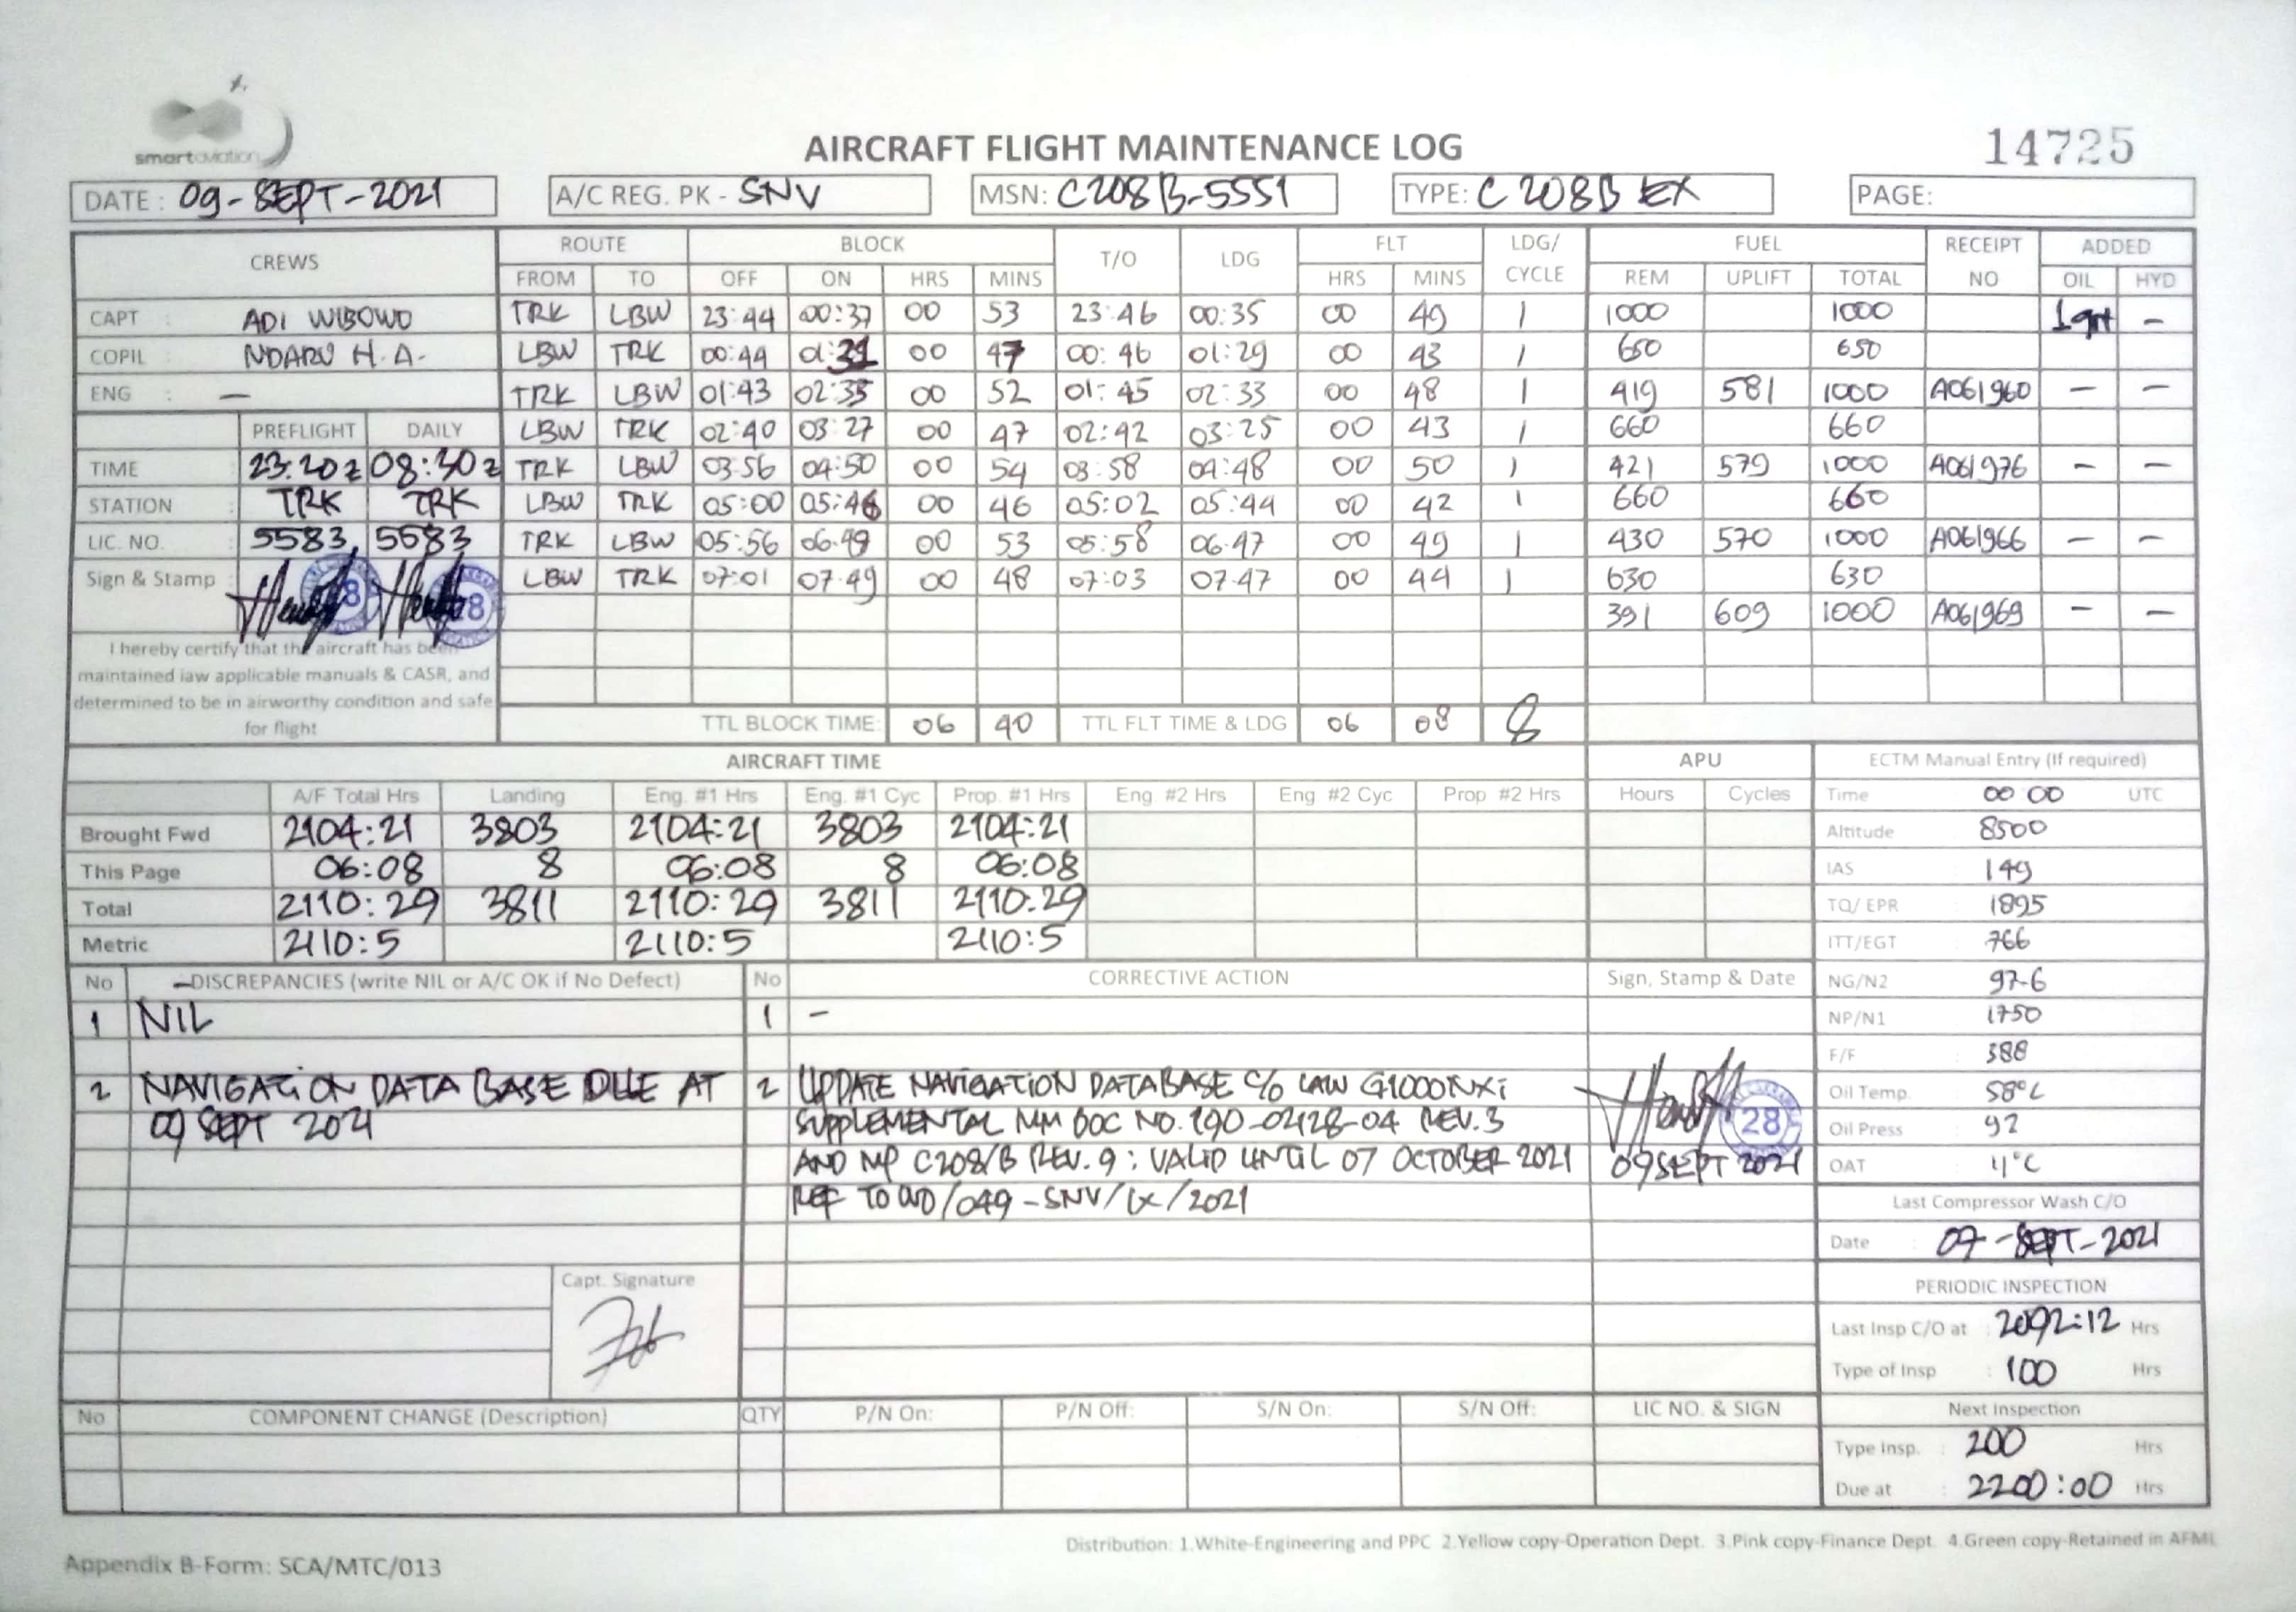 smartaviation
AIRCRAFT FLIGHT MAINTENANCE LOG
14725
DATE : 09-SEPT-2021 A/C REG. PK - SNV MSN: C208B-5551 TYPE: C208B EX PAGE:
CREWS ROUTE BLOCK T/O LDG FLT LDG/ CYCLE FUEL RECEIPT NO ADDED
FROM TO OFF ON HRS MINS HRS MINS REM UPLIFT TOTAL OIL HYD
CAPT : ADI WIBOWO TRK LBW 23:44 00:37 00 53 23:46 00:35 00 49 1 1000 1000 1 qrt -
COPIL : NDARU H.A. LBW TRK 00:44 01:31 00 47 00:46 01:29 00 43 1 650 650
ENG : - TRK LBW 01:43 02:35 00 52 01:45 02:33 00 48 1 419 581 1000 A061960 - -
PREFLIGHT DAILY LBW TRK 02:40 03:27 00 47 02:42 03:25 00 43 1 660 660
TIME : 23.20z 08:30z TRK LBW 03:56 04:50 00 54 03:58 04:48 00 50 1 421 579 1000 A061976 - -
STATION : TRK TRK LBW TRK 05:00 05:46 00 46 05:02 05:44 00 42 1 660 660
LIC. NO. : 5583 5583 TRK LBW 05:56 06:49 00 53 05:58 06:47 00 49 1 430 570 1000 A061966 - -
Sign & Stamp : 28 28 LBW TRK 07:01 07:49 00 48 07:03 07:47 00 44 1 630 630
391 609 1000 A061969 - -
I hereby certify that the aircraft has been
maintained iaw applicable manuals & CASR, and
determined to be in airworthy condition and safe
for flight
TTL BLOCK TIME: 06 40 TTL FLT TIME & LDG 06 08 8
AIRCRAFT TIME APU ECTM Manual Entry (If required)
A/F Total Hrs Landing Eng. #1 Hrs Eng. #1 Cyc Prop. #1 Hrs Eng. #2 Hrs Eng #2 Cyc Prop #2 Hrs Hours Cycles Time : 00 00 UTC
Brought Fwd 2104:21 3803 2104:21 3803 2104:21 Altitude : 8500
This Page 06:08 8 06:08 8 06:08 IAS : 149
Total 2110:29 3811 2110:29 3811 2110:29 TQ/ EPR : 1895
Metric 2110:5 2110:5 2110:5 ITT/EGT : 766
No DISCREPANCIES (write NIL or A/C OK if No Defect) No CORRECTIVE ACTION Sign, Stamp & Date NG/N2 : 97.6
1 NIL 1 - NP/N1 : 1750
F/F : 388
2 NAVIGATION DATA BASE DUE AT 2 UPDATE NAVIGATION DATABASE C/O IAW G1000NXi Oil Temp. : 58°C
09 SEPT 2021 SUPPLEMENTAL MM DOC NO. 190-02128-04 REV.3 28 Oil Press : 92
AND MP C208/B REV. 9 ; VALID UNTIL 07 OCTOBER 2021 09 SEPT 2021 OAT : 11°C
REF TO WO/049-SNV/IX/2021 Last Compressor Wash C/O
Date : 07-SEPT-2021
Capt. Signature PERIODIC INSPECTION
Last Insp C/O at : 2092:12 Hrs
Type of Insp : 100 Hrs
No COMPONENT CHANGE (Description) QTY P/N On: P/N Off: S/N On: S/N Off: LIC NO. & SIGN Next Inspection
Type Insp. : 200 Hrs
Due at : 2200:00 Hrs
Distribution: 1.White-Engineering and PPC 2.Yellow copy-Operation Dept. 3.Pink copy-Finance Dept. 4.Green copy-Retained in AFML
Appendix B-Form: SCA/MTC/013